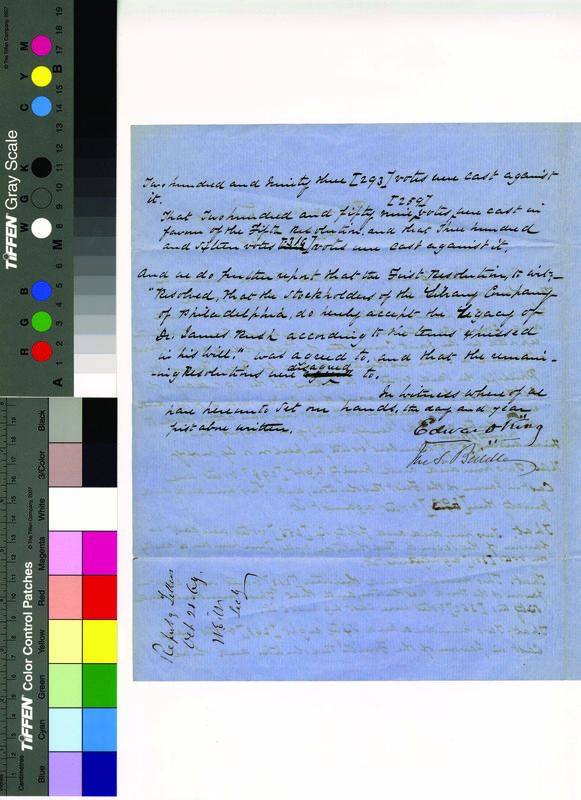 Two hundred and ninety three [293] votes were cast against
it.
[259]
That Two hundred and fifty nine votes were cast in
favor of the Fifth Resolution, and that Three hundred
and Sixteen votes [316] votes were cast against it.
And we do further report that the First Resolution, to wit,—
"Resolved, That the Stockholders of the Library Company
of Philadelphia, do hereby accept the Legacy of
Dr. James Rush according to the terms expressed
in his Will." was agreed to, and that the remain-
-ing Resolutions were disagreed to.
In Witness whereof we
have hereunto set our hands, the day and year
first above written.
Edward King
Jno. S. Biddle
Report of Tellers
Oct 21 69.
Secty
TIFFEN Gray Scale
© The Tiffen Company, 2007
R G B W G K C Y M
A 1 2 3 4 5 6 M 8 9 10 11 12 13 14 15 B 17 18 19
TIFFEN Color Control Patches
© The Tiffen Company, 2007
Centimetres
Blue Cyan Green Yellow Red Magenta White 3/Color Black